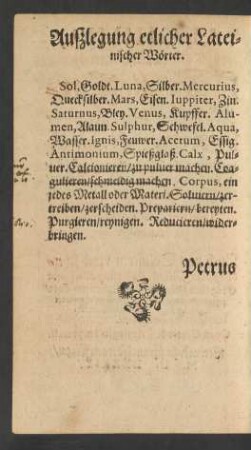 Außlegung etlicher Latei-
nischer Wörter.
Sol, Goldt. Luna, Silber. Mercurius,
Quecksilber. Mars, Eisen. Iuppiter, Zin.
Saturnus, Bley. Venus, Kupffer. Alu-
men, Alaun. Sulphur, Schwefel. Aqua,
Wasser. Ignis, Feuwer. Acetum, Essig.
Antimonium, Spießglaß. Calx, Pul-
uer. Calcionieren/ zu puluer machen. Coa-
gulieren/ schmeidig machen. Corpus, ein
jedes Metall oder Materi. Soluiern/ zer-
treiben/ zerscheiden. Prepariern/ bereyten.
Purgieren/ reynigen. Reducieren/ wider-
bringen.
Petrus